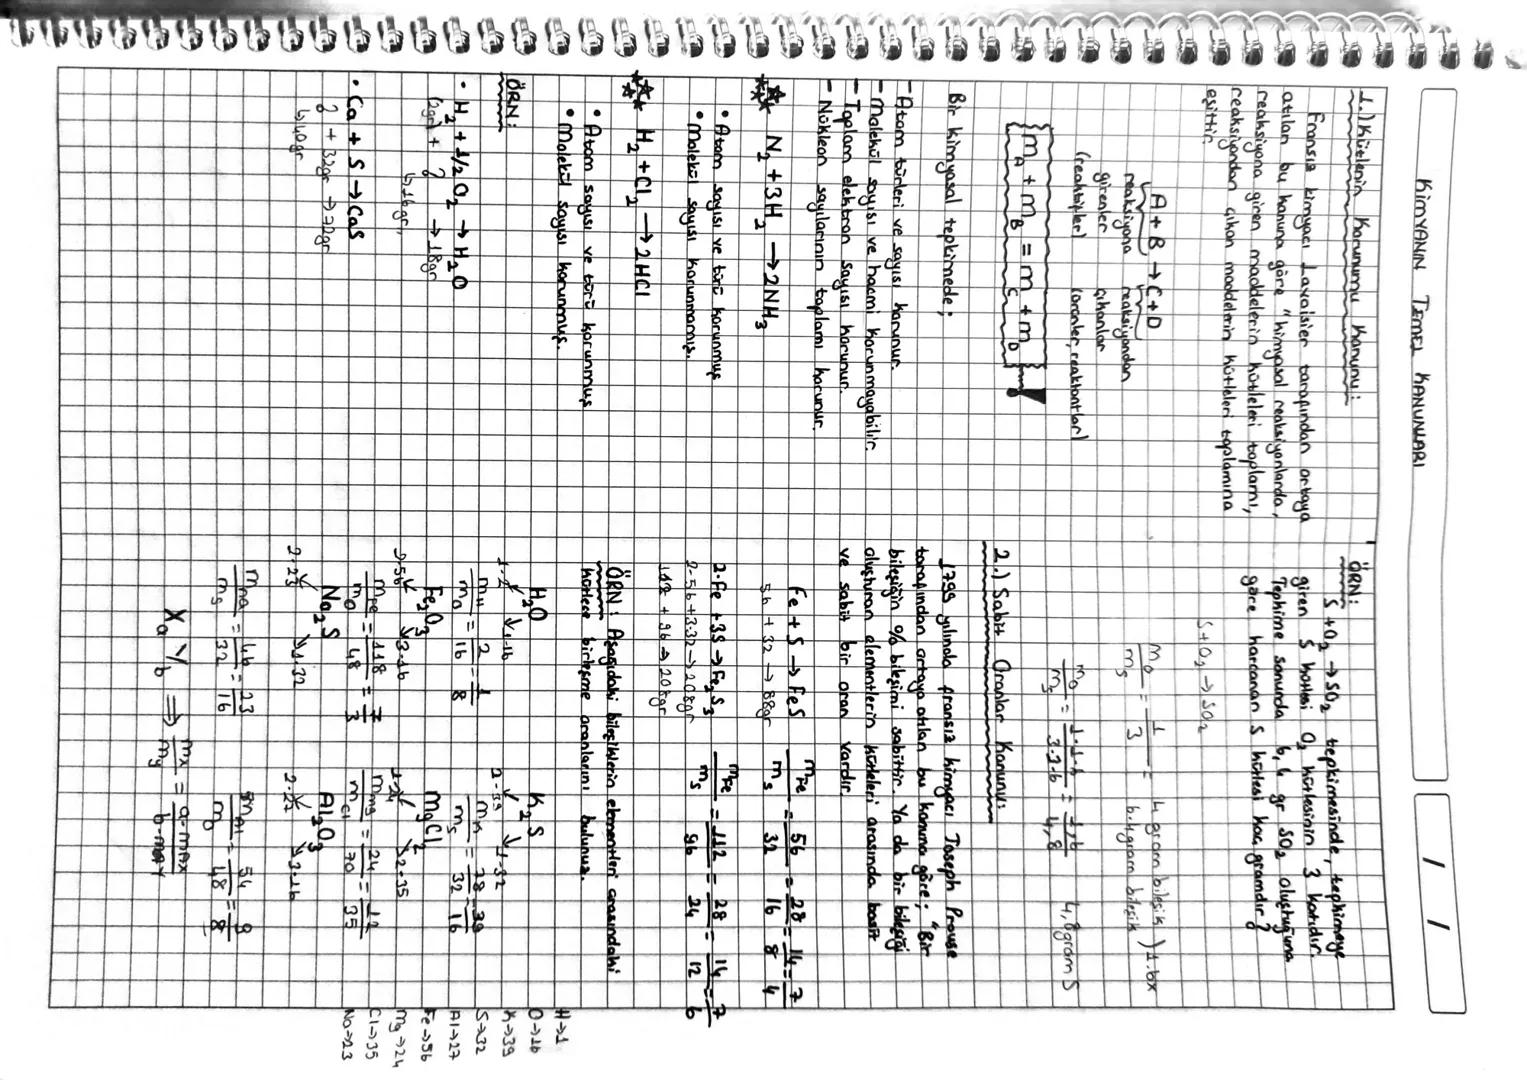 KİMYANIN TEMEL KANUNLARI
/ /
1.) Kütlenin Korunumu Kanunu:
Fransız kimyacı Lavoisier tarafından ortaya
atılan bu kanuna göre "kimyasal reaksiyonlarda,
reaksiyona giren maddelerin kütleleri toplamı,
reaksiyondan çıkan maddelerin kütleleri toplamına
eşittir.
A + B → C + D
reaksiyona reaksiyondan
girenler çıkanlar
(reaktifler) (ürünler, reaktantlar)
m_A + m_B = m_C + m_D
Bir kimyasal tepkimede;
- Atom türleri ve sayısı korunur.
- Molekül sayısı ve hacmi korunmayabilir.
- Toplam elektron sayısı korunur.
- Nükleon sayılarının toplamı korunur.
N₂ + 3H₂ → 2NH₃
• Atom sayısı ve türü korunmuş
• Molekül sayısı korunmamış.
H₂ + Cl₂ → 2HCl
• Atom sayısı ve türü korunmuş
• Molekül sayısı korunmuş.
ÖRN:
• H₂ + 1/2 O₂ → H₂O
2gr + ? → 18gr
↳ 16gr,
• Ca + S → CaS
? + 32gr → 72gr
↳ 40gr
ÖRN:
S + O₂ → SO₂ tepkimesinde, tepkimeye
giren S kütlesi O₂ kütlesinin 3 katıdır.
Tepkime sonunda 6,4 gr SO₂ oluştuğuna
göre harcanan S kütlesi kaç gramdır?
S + O₂ → SO₂
m_O/m_S = 1/3 = 4 gram bileşik ) 1.6x
6.4 gram bileşik
m_O/m_S = 1.1.6/3.1.6 = 1,6/4,8 4,8 gram S
2.) Sabit Oranlar Kanunu:
1799 yılında fransız kimyacı Joseph Prouse
tarafından ortaya atılan bu kanuna göre; "Bir
bileşiğin % bileşimi sabittir. Ya da bir bileşiği
oluşturan elementlerin kütleleri arasında basit
ve sabit bir oran vardır.
Fe + S → FeS m_Fe/m_S = 56/32 = 28/16 = 14/8 = 7/4
56 + 32 → 88gr
2.Fe + 3S → Fe₂S₃ m_Fe/m_S = 112/96 = 28/24 = 14/12 = 7/6
2.56 + 3.32 → 208gr
112 + 96 → 208gr
ÖRN: Aşağıdaki bileşiklerin elementleri arasındaki
kütlece birleşme oranlarını bulunuz.
H₂O K₂S
1.2 1.16 2.39 1.32
m_H/m_O = 2/16 = 1/8 m_K/m_S = 78/32 = 39/16
Fe₂O₃ MgCl₂
2.56 3.16 1.24 2.35
m_Fe/m_O = 118/48 = 7/3 m_Mg/m_Cl = 24/70 = 12/35
Na₂S Al₂O₃
2.23 1.32 2.27 3.16
m_Na/m_S = 46/32 = 23/16 m_Al/m_O = 54/48 = 9/8
XaYb ⇒ m_X/m_Y = a.mAX/b.mAY
H→1
O→16
K→39
S→32
Al→27
Fe→56
Mg→24
Cl→35
Na→23